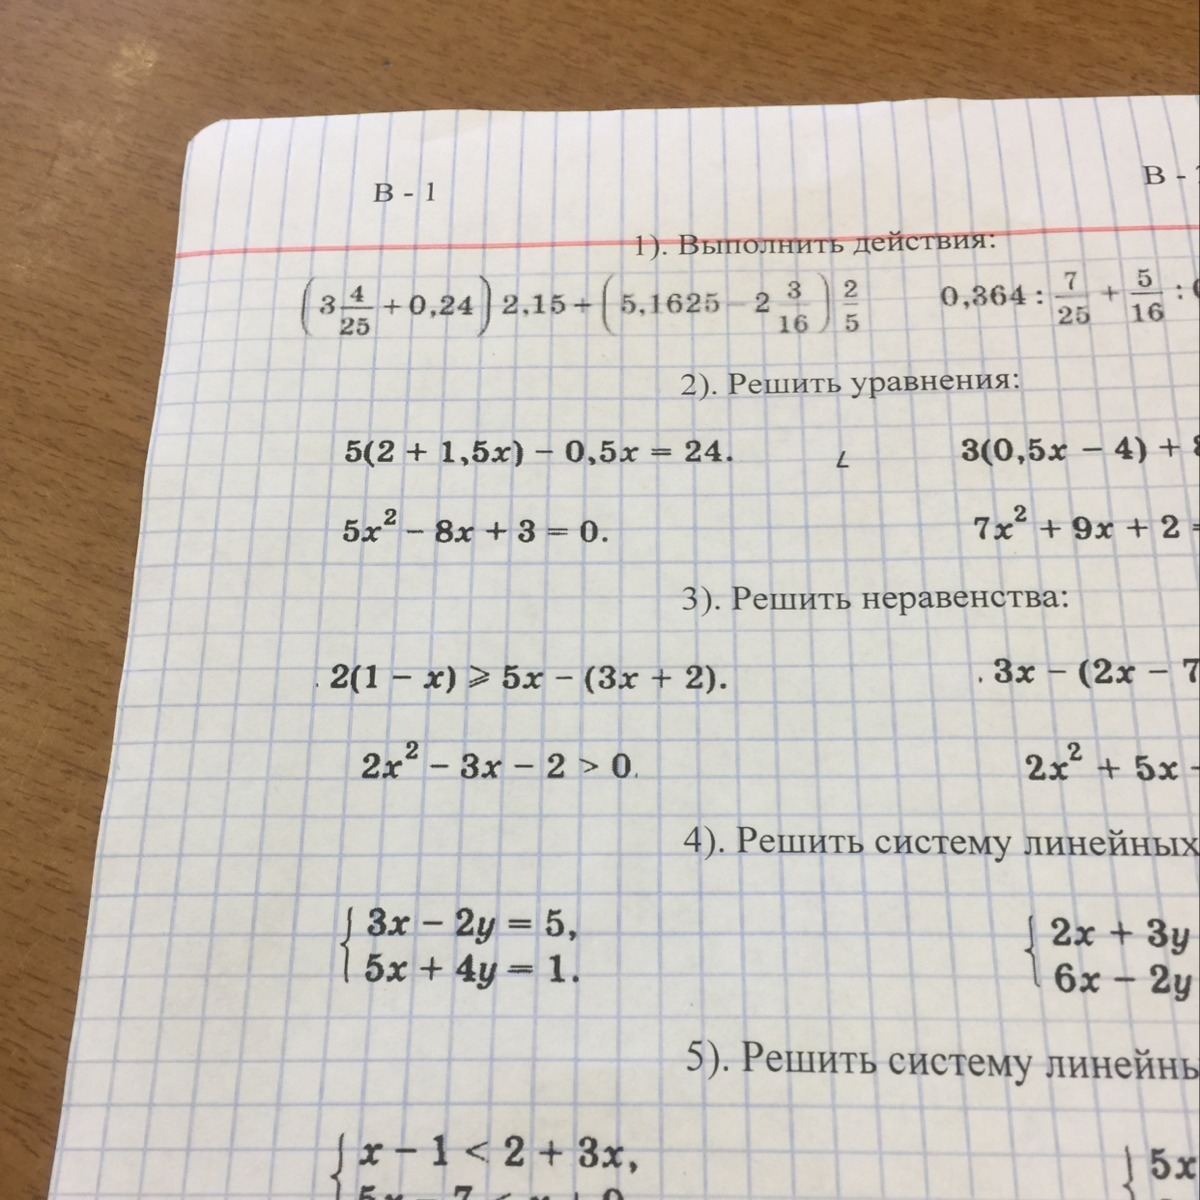 В - 1
В -
1). Выполнить действия:
(3 4/25 + 0,24) 2,15 + (5,1625 - 2 3/16) 2/5
0,364 : 7/25 + 5/16 :
2). Решить уравнения:
5(2 + 1,5x) − 0,5x = 24.
3(0,5x − 4) +
5x² − 8x + 3 = 0.
7x² + 9x + 2 =
3). Решить неравенства:
2(1 − x) ⩾ 5x − (3x + 2).
3x − (2x − 7
2x² − 3x − 2 > 0.
2x² + 5x -
4). Решить систему линейных
{ 3x − 2y = 5,
5x + 4y = 1.
{ 2x + 3y
6x − 2y
5). Решить систему линейны
{ x − 1 < 2 + 3x,
{ 5x